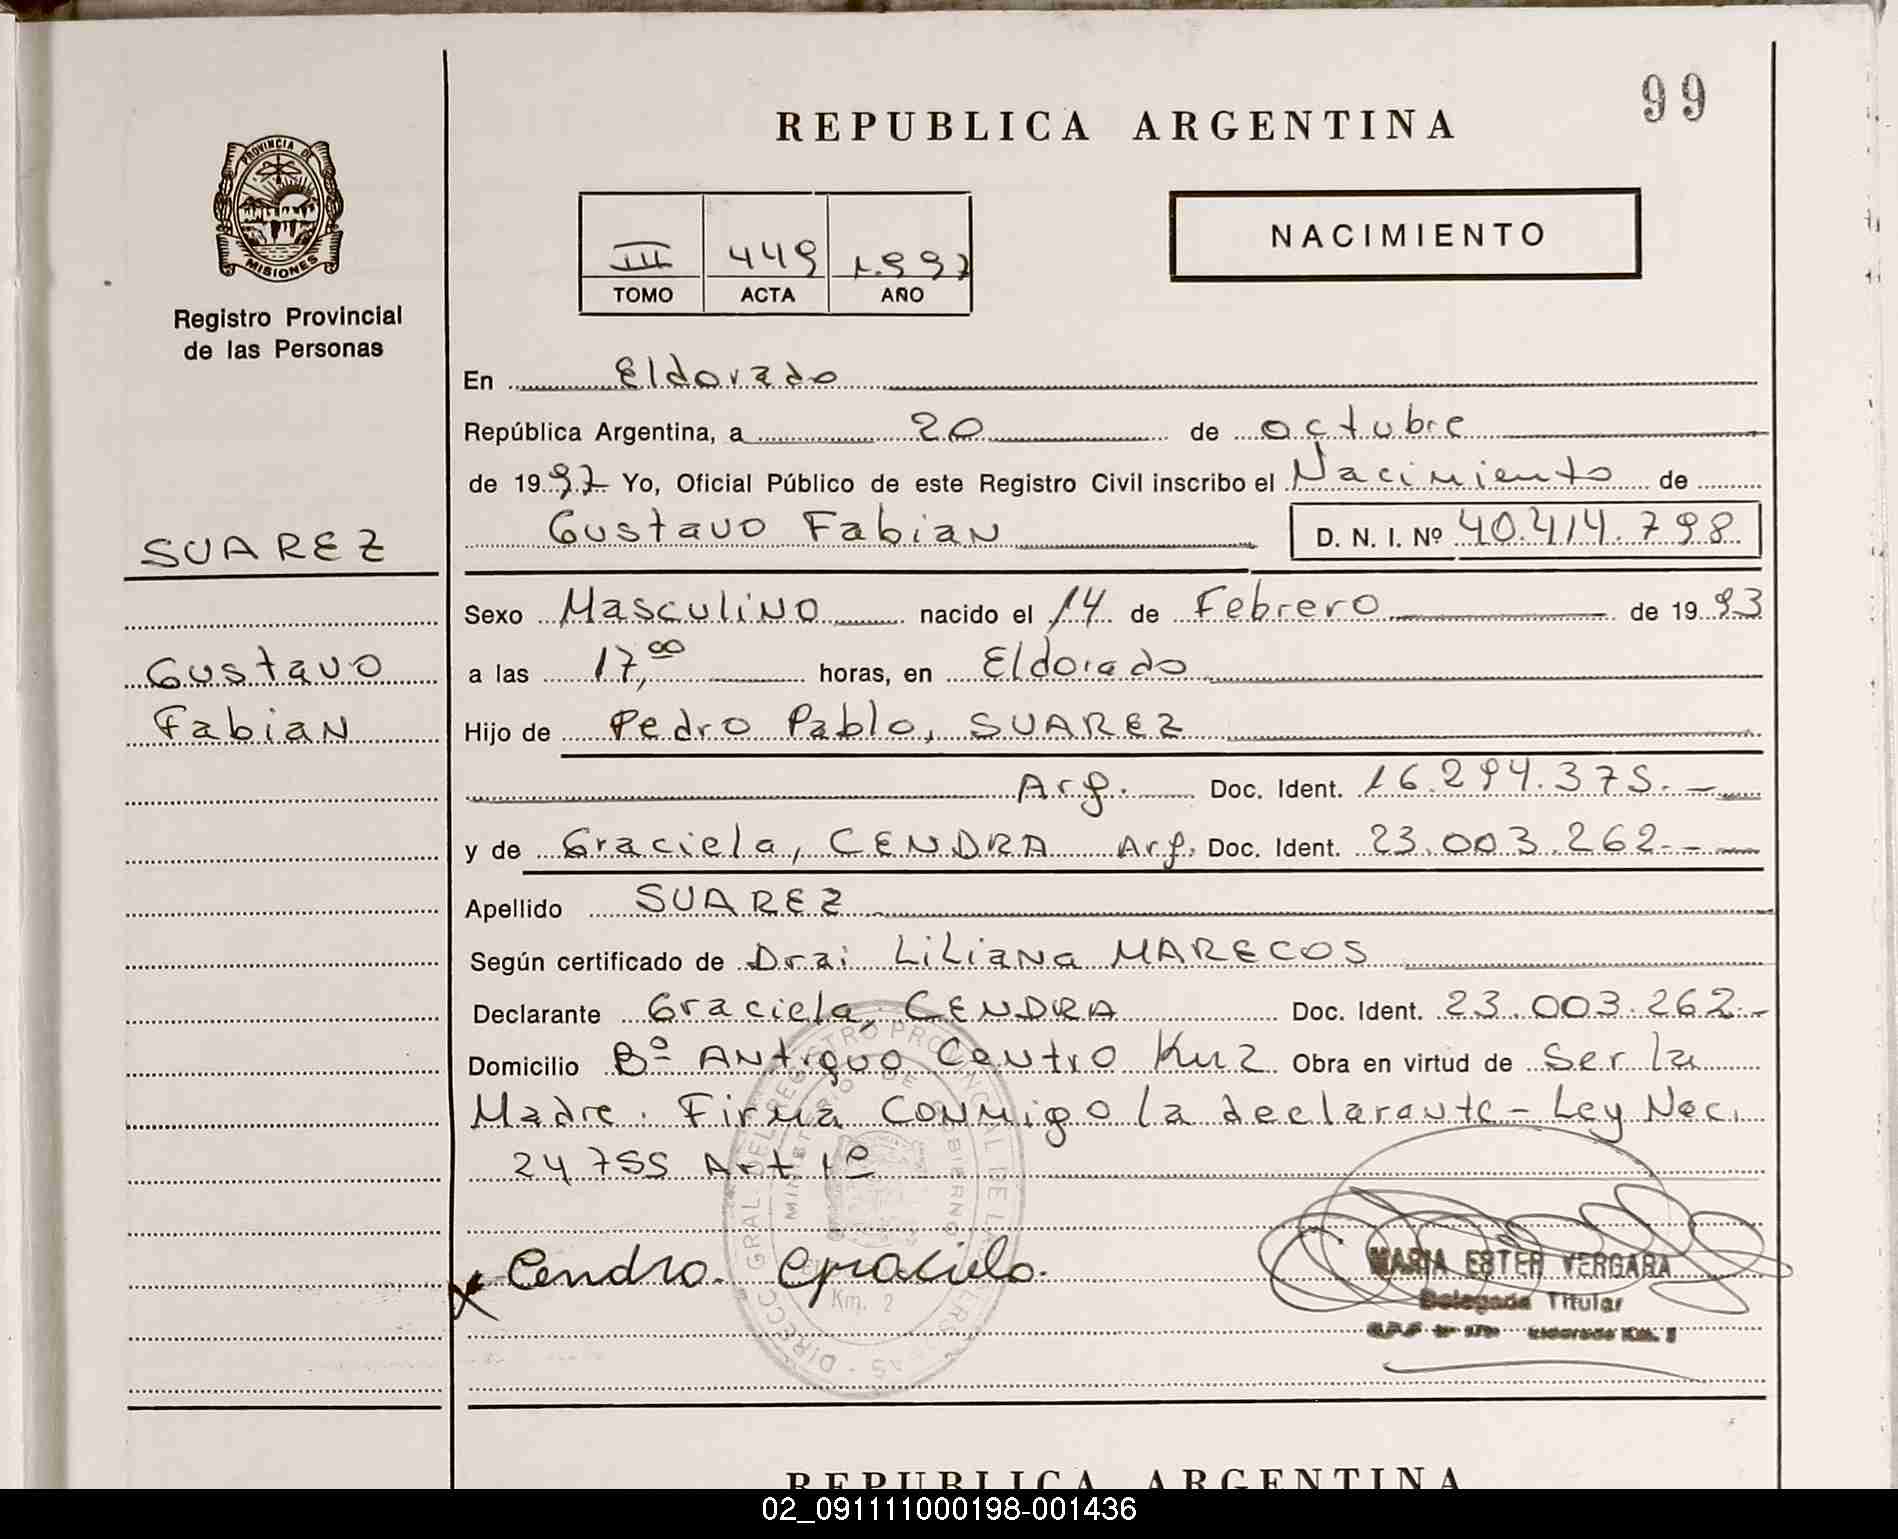 99
REPUBLICA ARGENTINA
PROVINCIA DE
MISIONES
Registro Provincial
de las Personas
III 449 1.997
TOMO ACTA AÑO
NACIMIENTO
En Eldorado
República Argentina, a 20 de octubre
de 1997 Yo, Oficial Público de este Registro Civil inscribo el Nacimiento de
Gustavo Fabian D. N. I. Nº 40.414.798
SUAREZ
Gustavo
Fabian
Sexo Masculino nacido el 14 de Febrero de 1993
a las 17,00 horas, en Eldorado
Hijo de Pedro Pablo, SUAREZ
Arg. Doc. Ident. 16.294.375.-
y de Graciela, CENDRA Arg. Doc. Ident. 23.003.262.-
Apellido SUAREZ
Según certificado de Dra: Liliana MARECOS
Declarante Graciela, CENDRA Doc. Ident. 23.003.262.-
Domicilio Bº Antiguo Centro Km 2 Obra en virtud de Ser la
Madre. Firma conmigo la declarante - Ley Nac.
24755 Art 1º
Cendra Graciela
DIRECC. GRAL. DEL REGISTRO PROVINCIAL DE LAS PERSONAS
MINISTERIO DE GOBIERNO
Km. 2
MARIA ESTER VERGARA
Delegada Titular
Eldorado Km. 2
REPUBLICA ARGENTINA
02_091111000198-001436